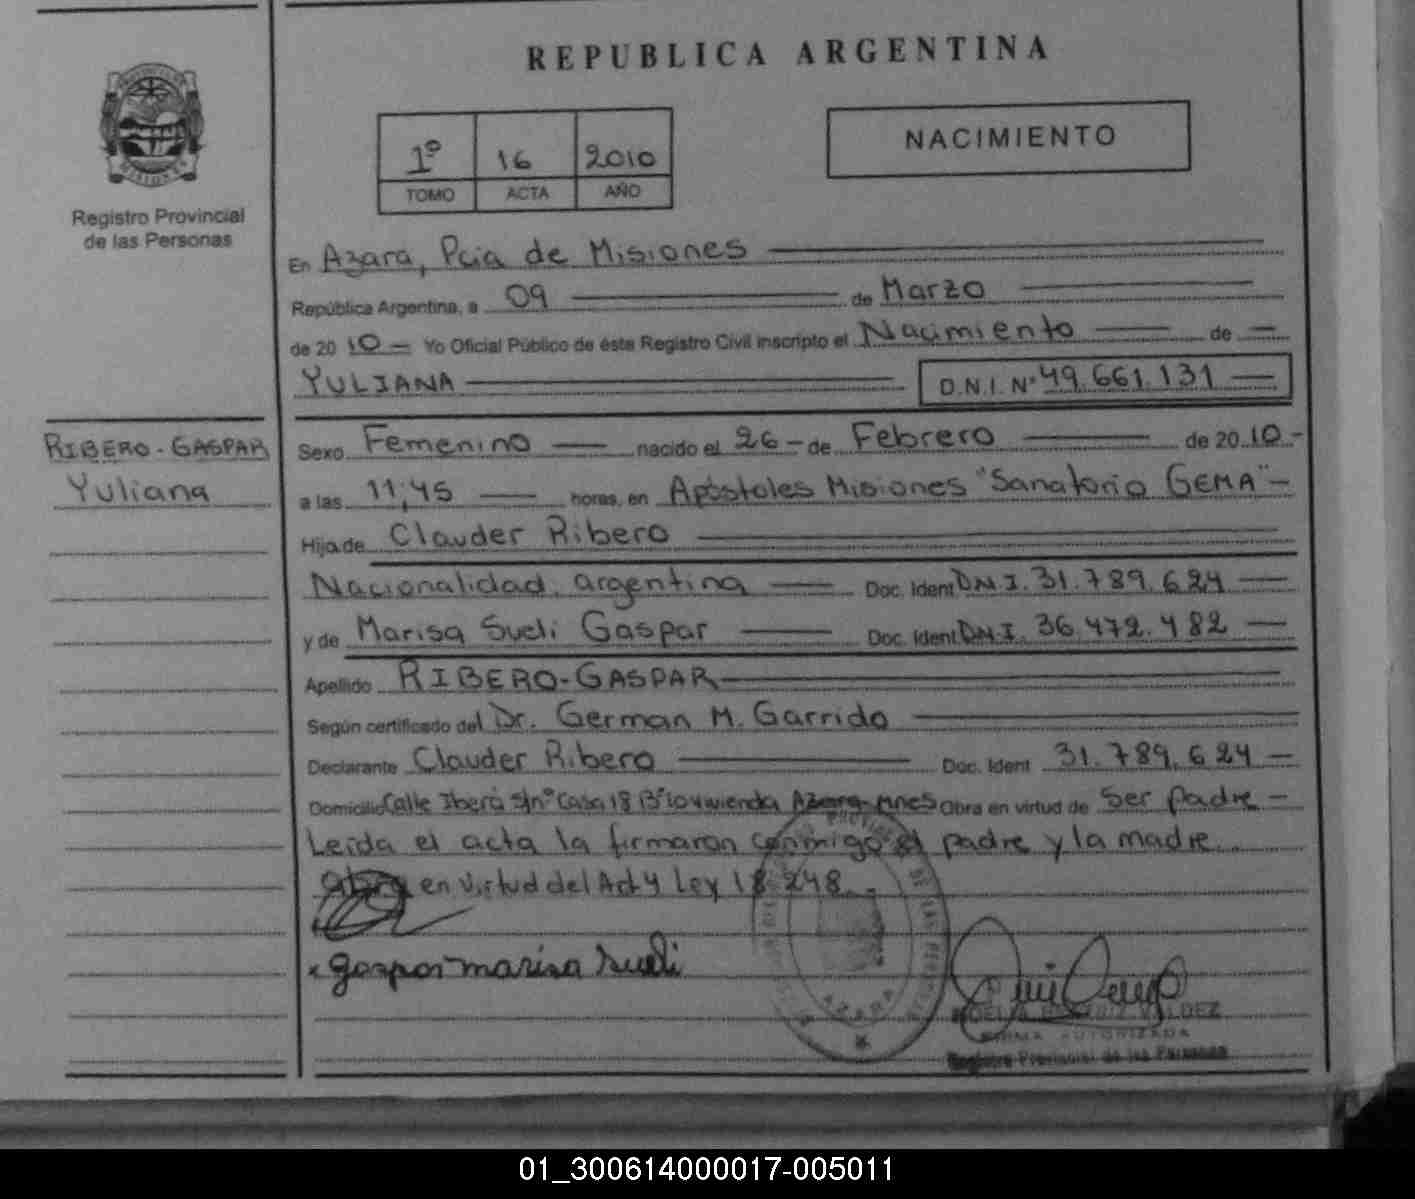 REPUBLICA ARGENTINA
PROVINCIA DE MISIONES
Registro Provincial
de las Personas
1º 16 2010
TOMO ACTA AÑO
NACIMIENTO
En Azara, Pcia de Misiones
República Argentina, a 09 de Marzo
de 2010 Yo Oficial Público de éste Registro Civil inscripto el Nacimiento de
YULIANA D.N.I. Nº 49.661.131
RIBERO-GASPAR
Yuliana
Sexo Femenino nacido el 26 de Febrero de 2010
a las 11;45 horas, en Apóstoles Misiones "Sanatorio GEMA"
Hija de Clauder Ribero
Nacionalidad argentina Doc. Ident D.N.I. 31.789.624
y de Marisa Sueli Gaspar Doc. Ident D.N.I. 36.472.482
Apellido RIBERO-GASPAR
Según certificado del Dr. German M. Garrido
Declarante Clauder Ribero Doc. Ident 31.789.624
Domicilio Calle Iberá S/nº Casa 18 Bº vivienda Azara-Mnes Obra en virtud de Ser padre
Leída el acta la firmaron conmigo el padre y la madre
en virtud del Art 4 Ley 18.248.
x gaspar marisa sueli
AZARA
VALDEZ
FIRMA AUTORIZADA
Registro Provincial de las Personas
01_300614000017-005011